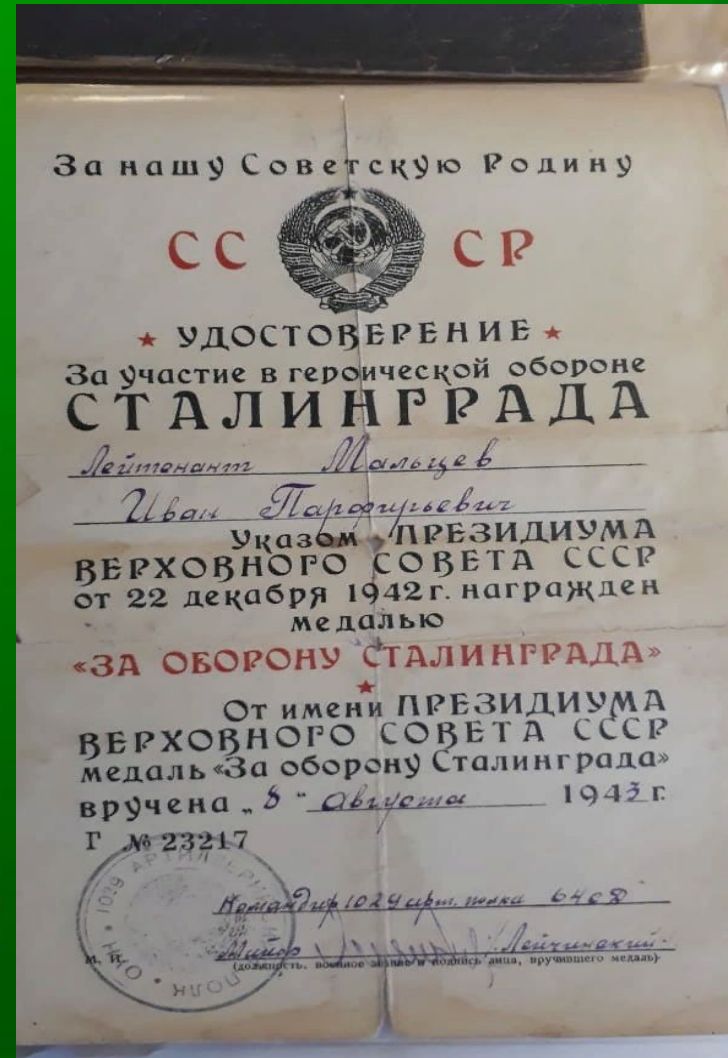 За нашу Советскую Родину
СС СР
УДОСТОВЕРЕНИЕ
За участие в героической обороне
СТАЛИНГРАДА
Лейтенант Мальцев
Иван Парфирьевич
Указом ПРЕЗИДИУМА
ВЕРХОВНОГО СОВЕТА СССР
от 22 декабря 1942 г. награжден
медалью
«ЗА ОБОРОНУ СТАЛИНГРАДА»
От имени ПРЕЗИДИУМА
ВЕРХОВНОГО СОВЕТА СССР
медаль «За оборону Сталинграда»
вручена „8" августа 1943 г.
Г № 23217
Командир 1029 арт. полка 64 сд
Майор Лейчинский
М. П.
(должность, военное звание и подпись лица, вручившего медаль)
ПОЛК